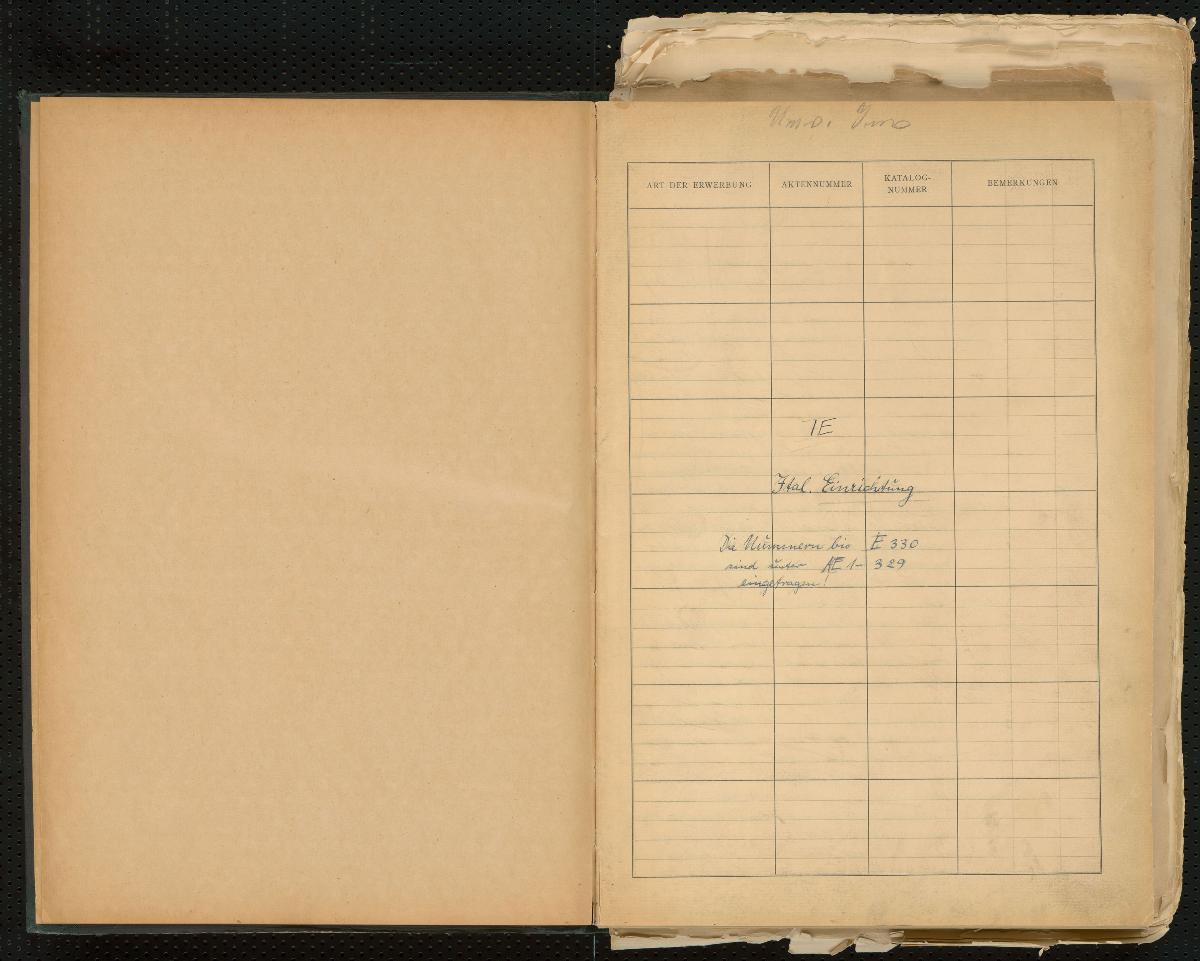 ART DER ERWERBUNG
AKTENNUMMER
KATALOG-
NUMMER
BEMERKUNGEN
IE
Ital. Einrichtung
Die Nummern bis E 330
sind unter AE 1-329
eingetragen!